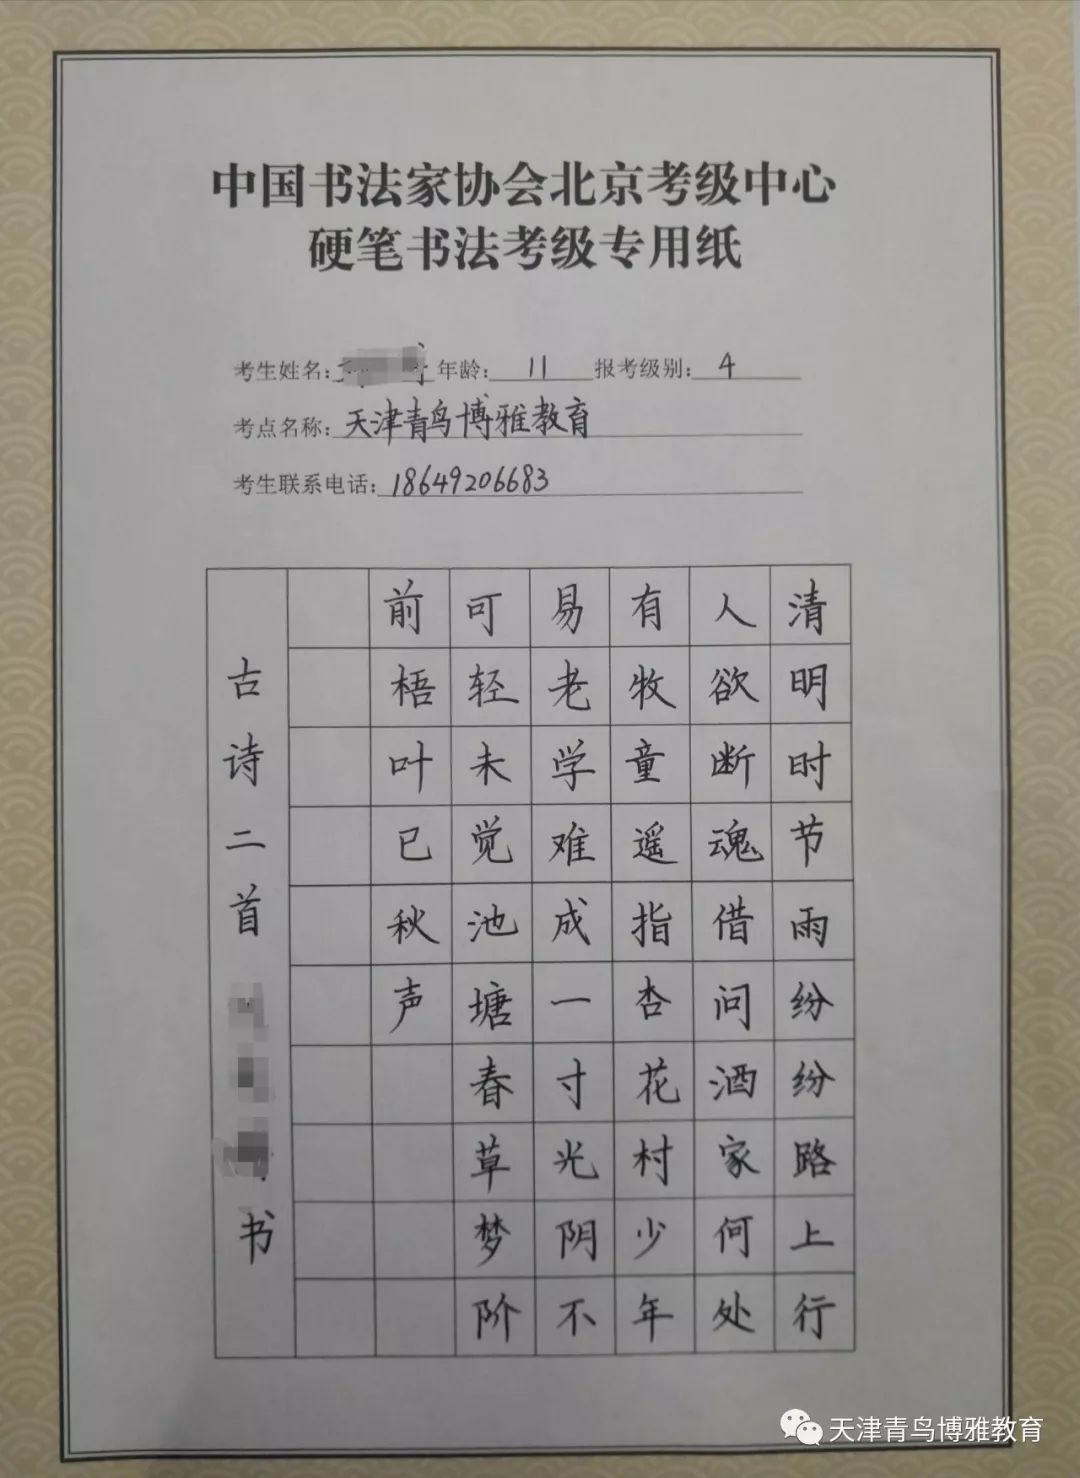 中国书法家协会北京考级中心
硬笔书法考级专用纸
考生姓名: 年龄: 11 报考级别: 4
考点名称: 天津青鸟博雅教育
考生联系电话: 18649206683
清明时节雨纷纷路上行
人欲断魂借问酒家何处
有牧童遥指杏花村少年
易老学难成一寸光阴不
可轻未觉池塘春草梦阶
前梧叶已秋声
古诗二首
书
天津青鸟博雅教育